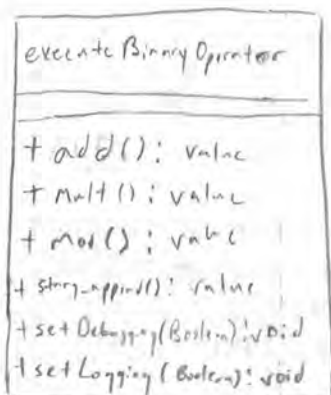 execute Binary Operator
+ add(): value
+ Mult(): value
+ Mod(): value
+ string_append(): value
+ set Debugging(Boolean): void
+ set Logging (Boolean): void